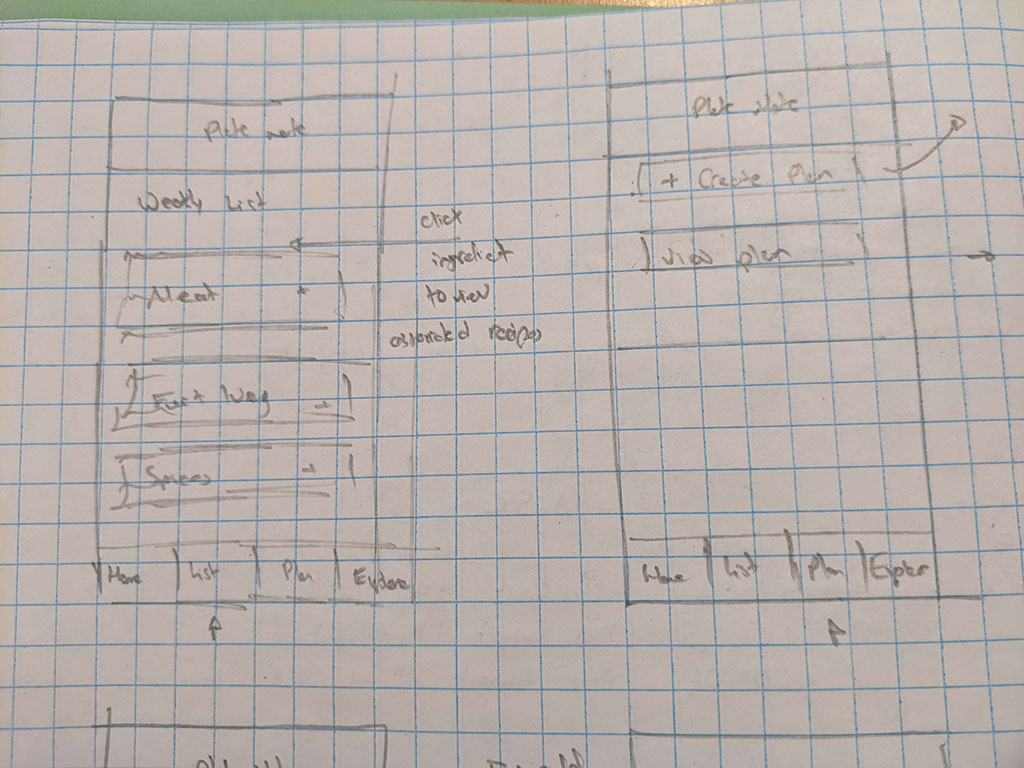 Plate mate
Weekly List
click
ingredient
to view
associated recipes
Meat +
Fruit + Veg +
Spices +
Home List Plan Explore
Plate mate
+ Create Plan
View plan
Home List Plan Explore